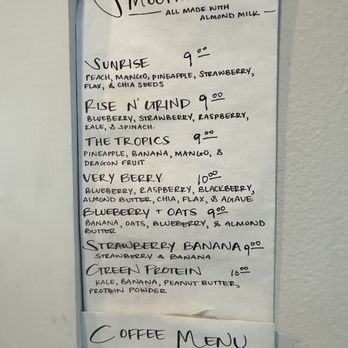 ALL MADE WITH
ALMOND MILK
SUNRISE 9.00
PEACH, MANGO, PINEAPPLE, STRAWBERRY,
FLAX, & CHIA SEEDS
RISE N' GRIND 9.00
BLUEBERRY, STRAWBERRY, RASPBERRY,
KALE, & SPINACH.
THE TROPICS 9.00
PINEAPPLE, BANANA, MANGO, &
DRAGON FRUIT
VERY BERRY 10.00
BLUEBERRY, RASPBERRY, BLACKBERRY,
ALMOND BUTTER, CHIA, FLAX, & AGAVE
BLUEBERRY + OATS 9.00
BANANA, OATS, BLUEBERRY, & ALMOND
BUTTER
STRAWBERRY BANANA 9.00
STRAWBERRY & BANANA
GREEN PROTEIN 10.00
KALE, BANANA, PEANUT BUTTER,
PROTEIN POWDER
COFFEE MENU